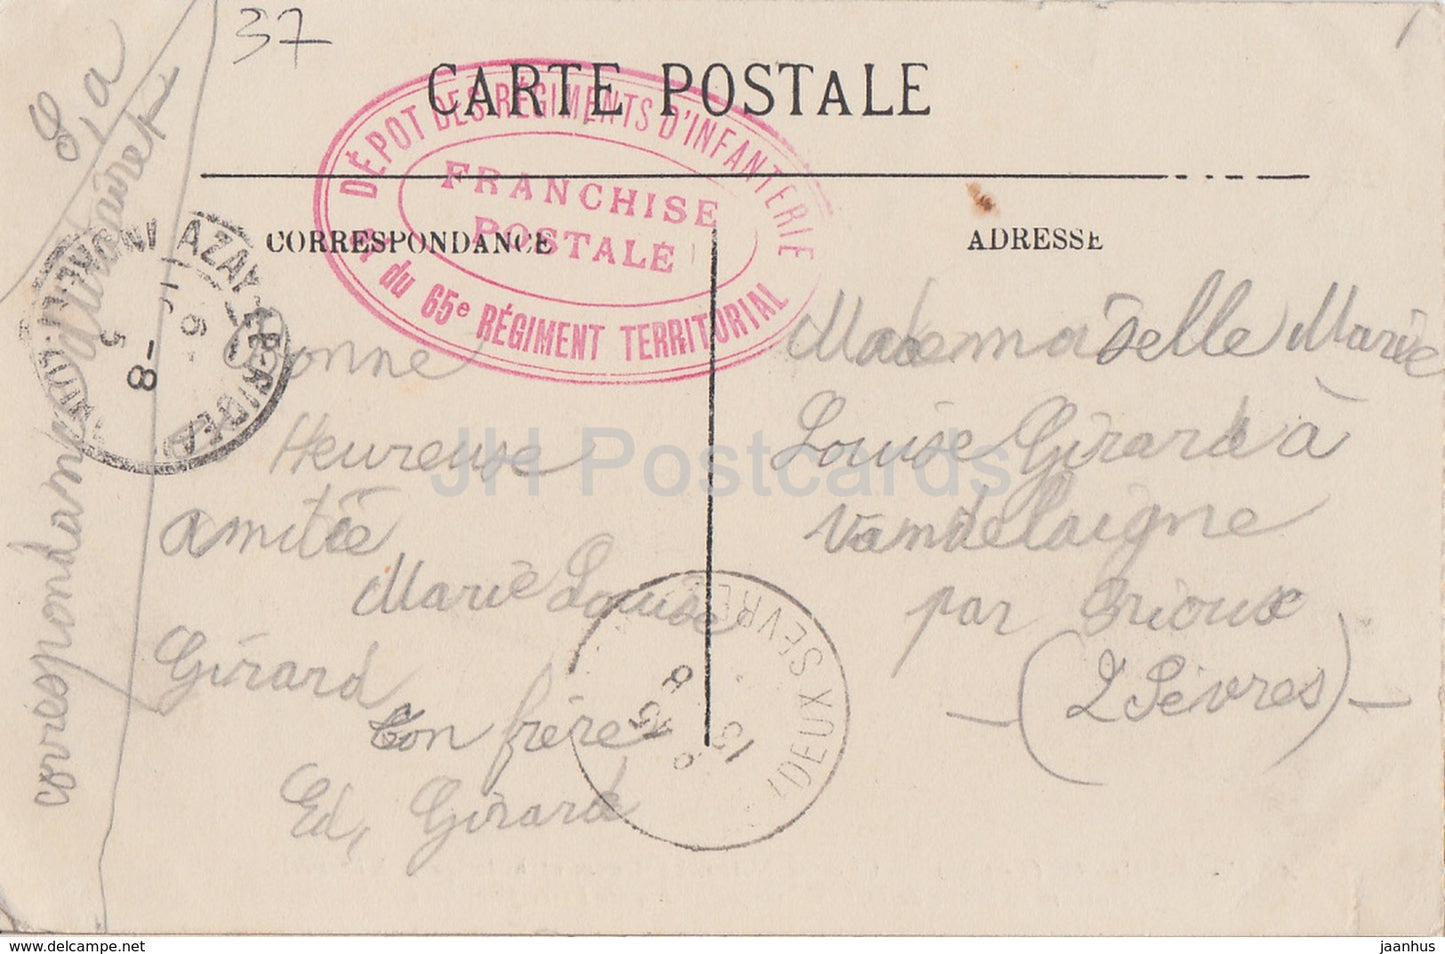 37
CARTE POSTALE
DÉPOT DES RÉGIMENTS D'INFANTERIE
du 65e RÉGIMENT TERRITORIAL
FRANCHISE
POSTALE
CORRESPONDANCE
ADRESSE
La
correspondance
militaire
AZAY-LE-RIDEAU
INDRE-ET-LOIRE
Bonne
Heureuse
amitiée
Marie Louise
Girard
ton frère
Ed, Girard
Mademoiselle Marie
Louise Girard à
Vandelaigne
par Brioux
(2 Sèvres)
(DEUX SEVRES)
JH Postcards
www.delcampe.net
jaanhus